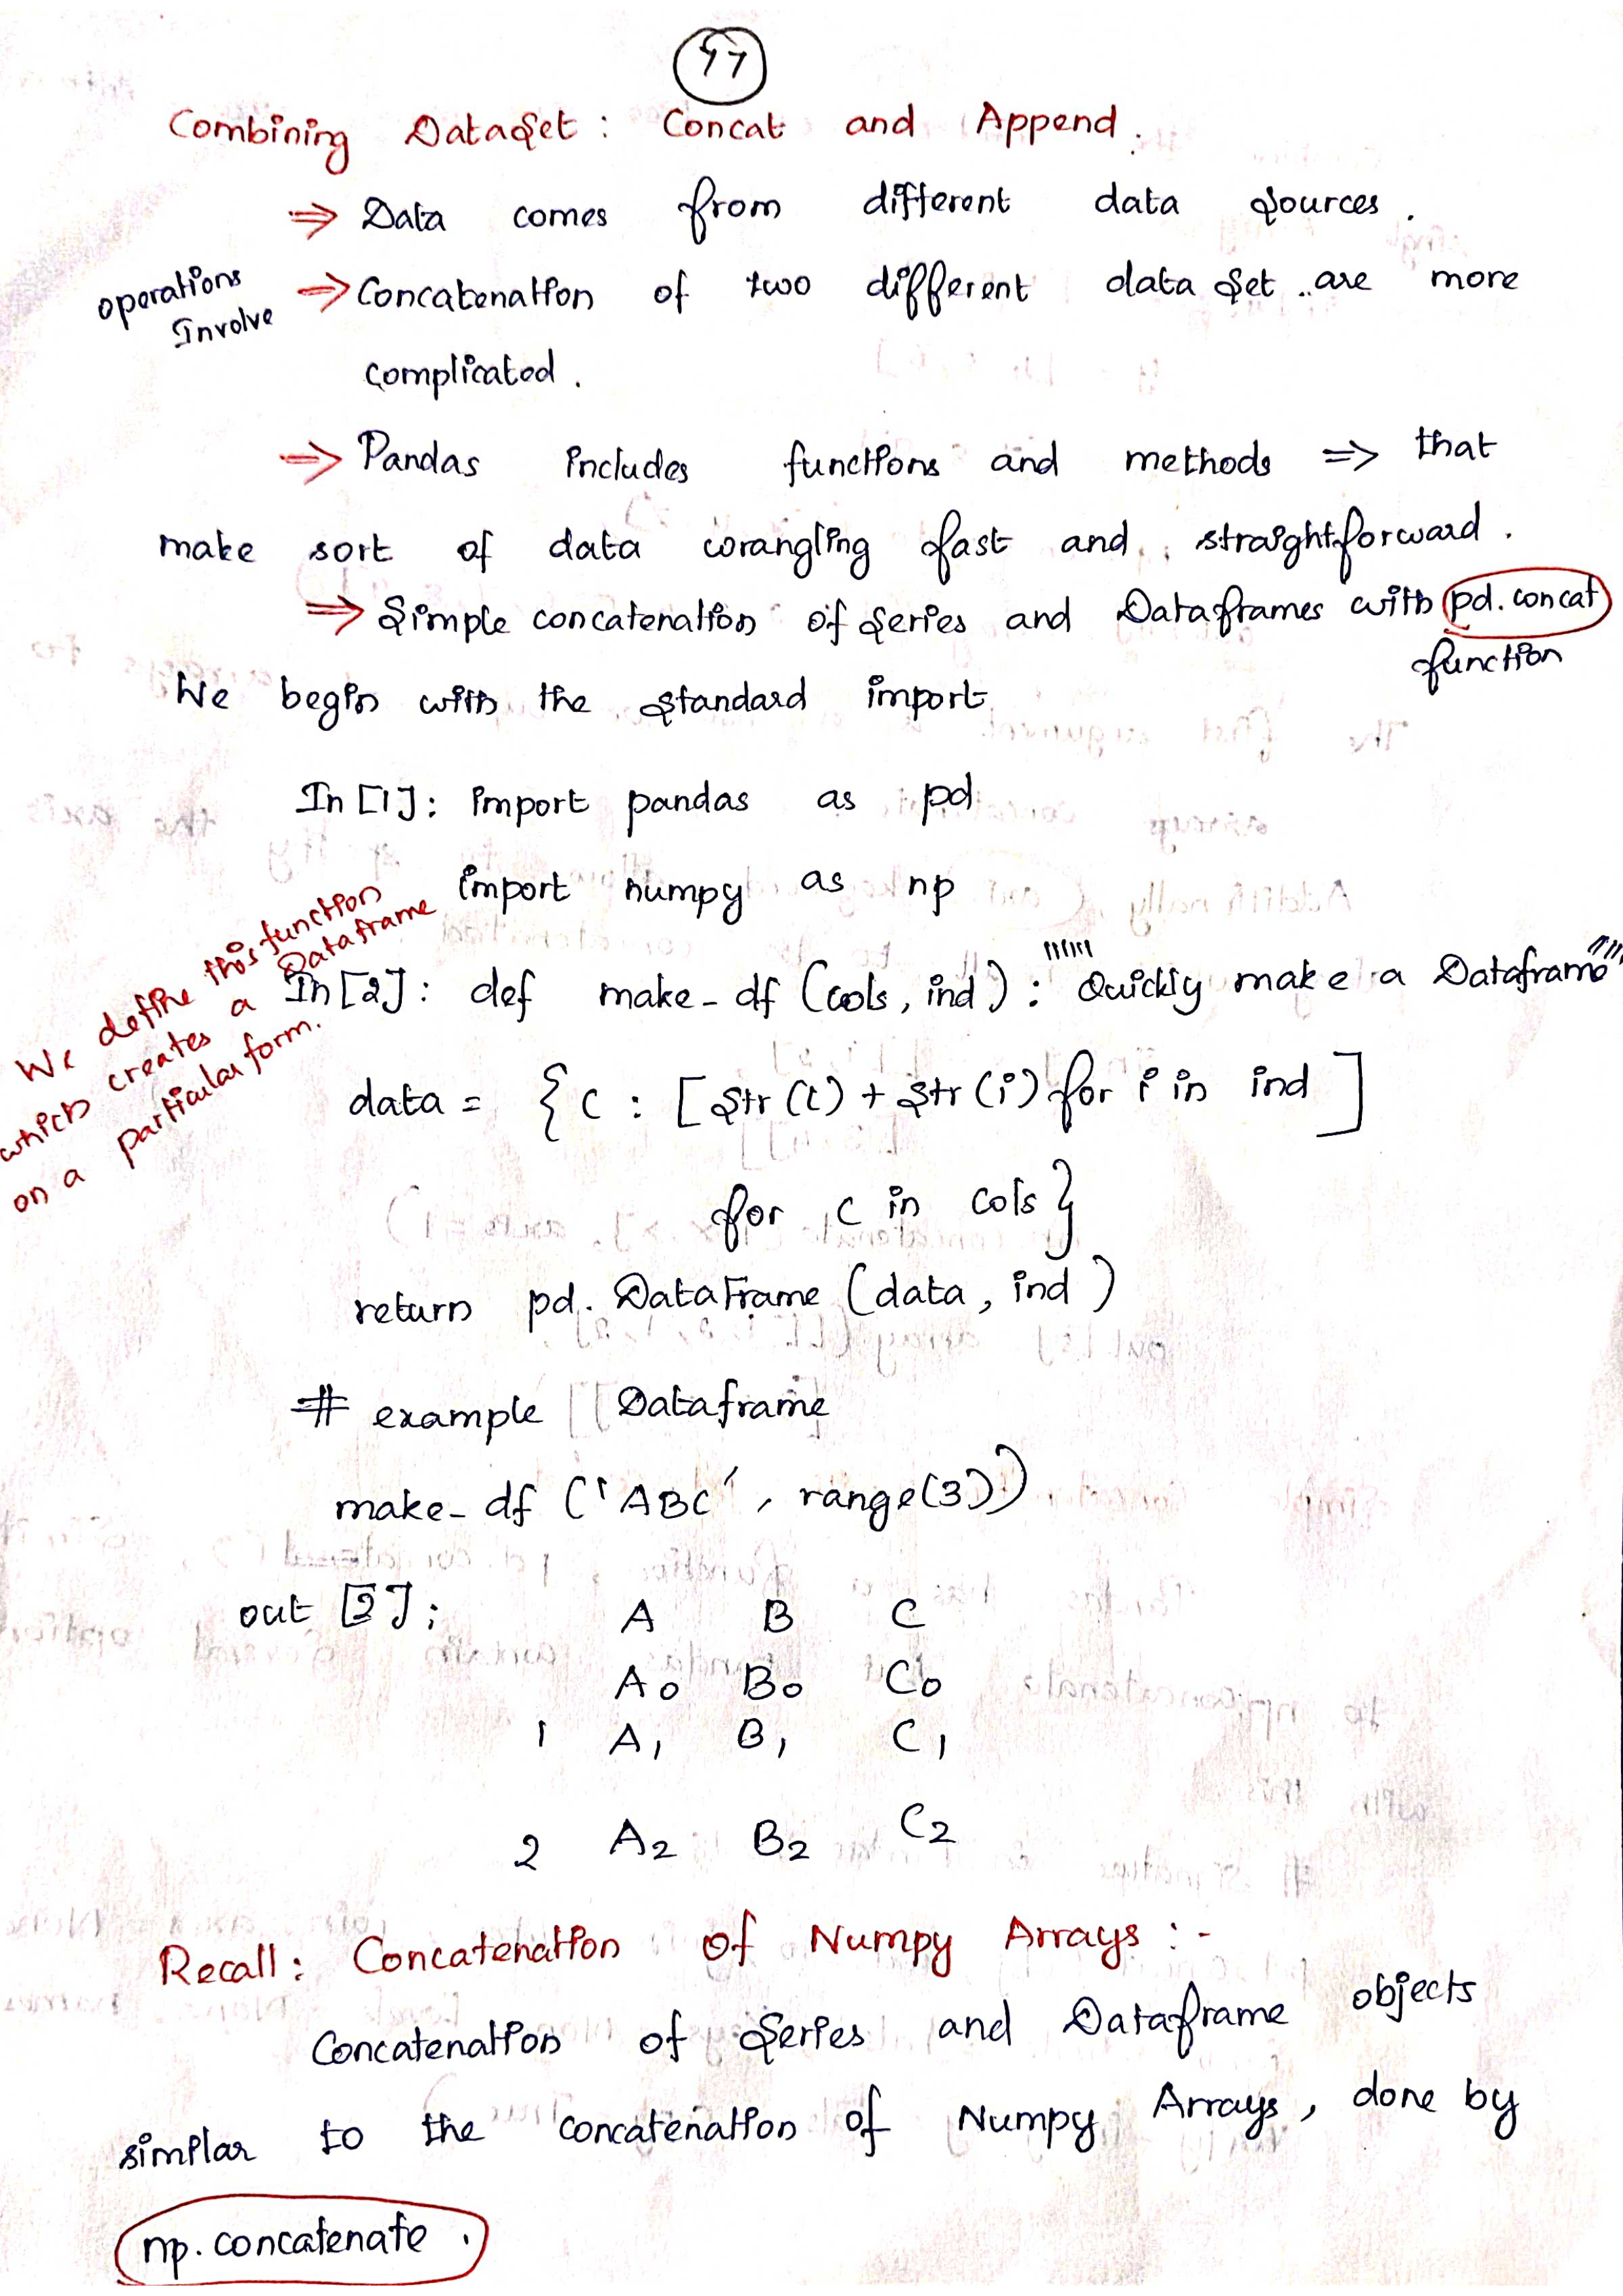 47
Combining Dataset: Concat and Append.
⇒ Data comes from different data sources.
operations
Involve
⇒ Concatenation of two different data set are more
complicated.
⇒ Pandas includes functions and methods ⇒ that
make sort of data wrangling fast and straightforward.
⇒ Simple concatenation of series and Dataframes with pd.concat
function
We begin with the standard import
In [1]: import pandas as pd
import numpy as np
We define this function
which creates a Dataframe
on a particular form.
In [2]: def make_df (cols, ind): """Quickly make a Dataframe"""
data = {c : [str(c) + str(i) for i in ind]
for c in cols}
return pd.DataFrame (data, ind)
# example Dataframe
make_df ('ABC', range(3))
out [2]: A B C
A0 B0 C0
1 A1 B1 C1
2 A2 B2 C2
Recall: Concatenation of Numpy Arrays :-
Concatenation of Series and Dataframe objects
similar to the concatenation of Numpy Arrays, done by
np.concatenate.